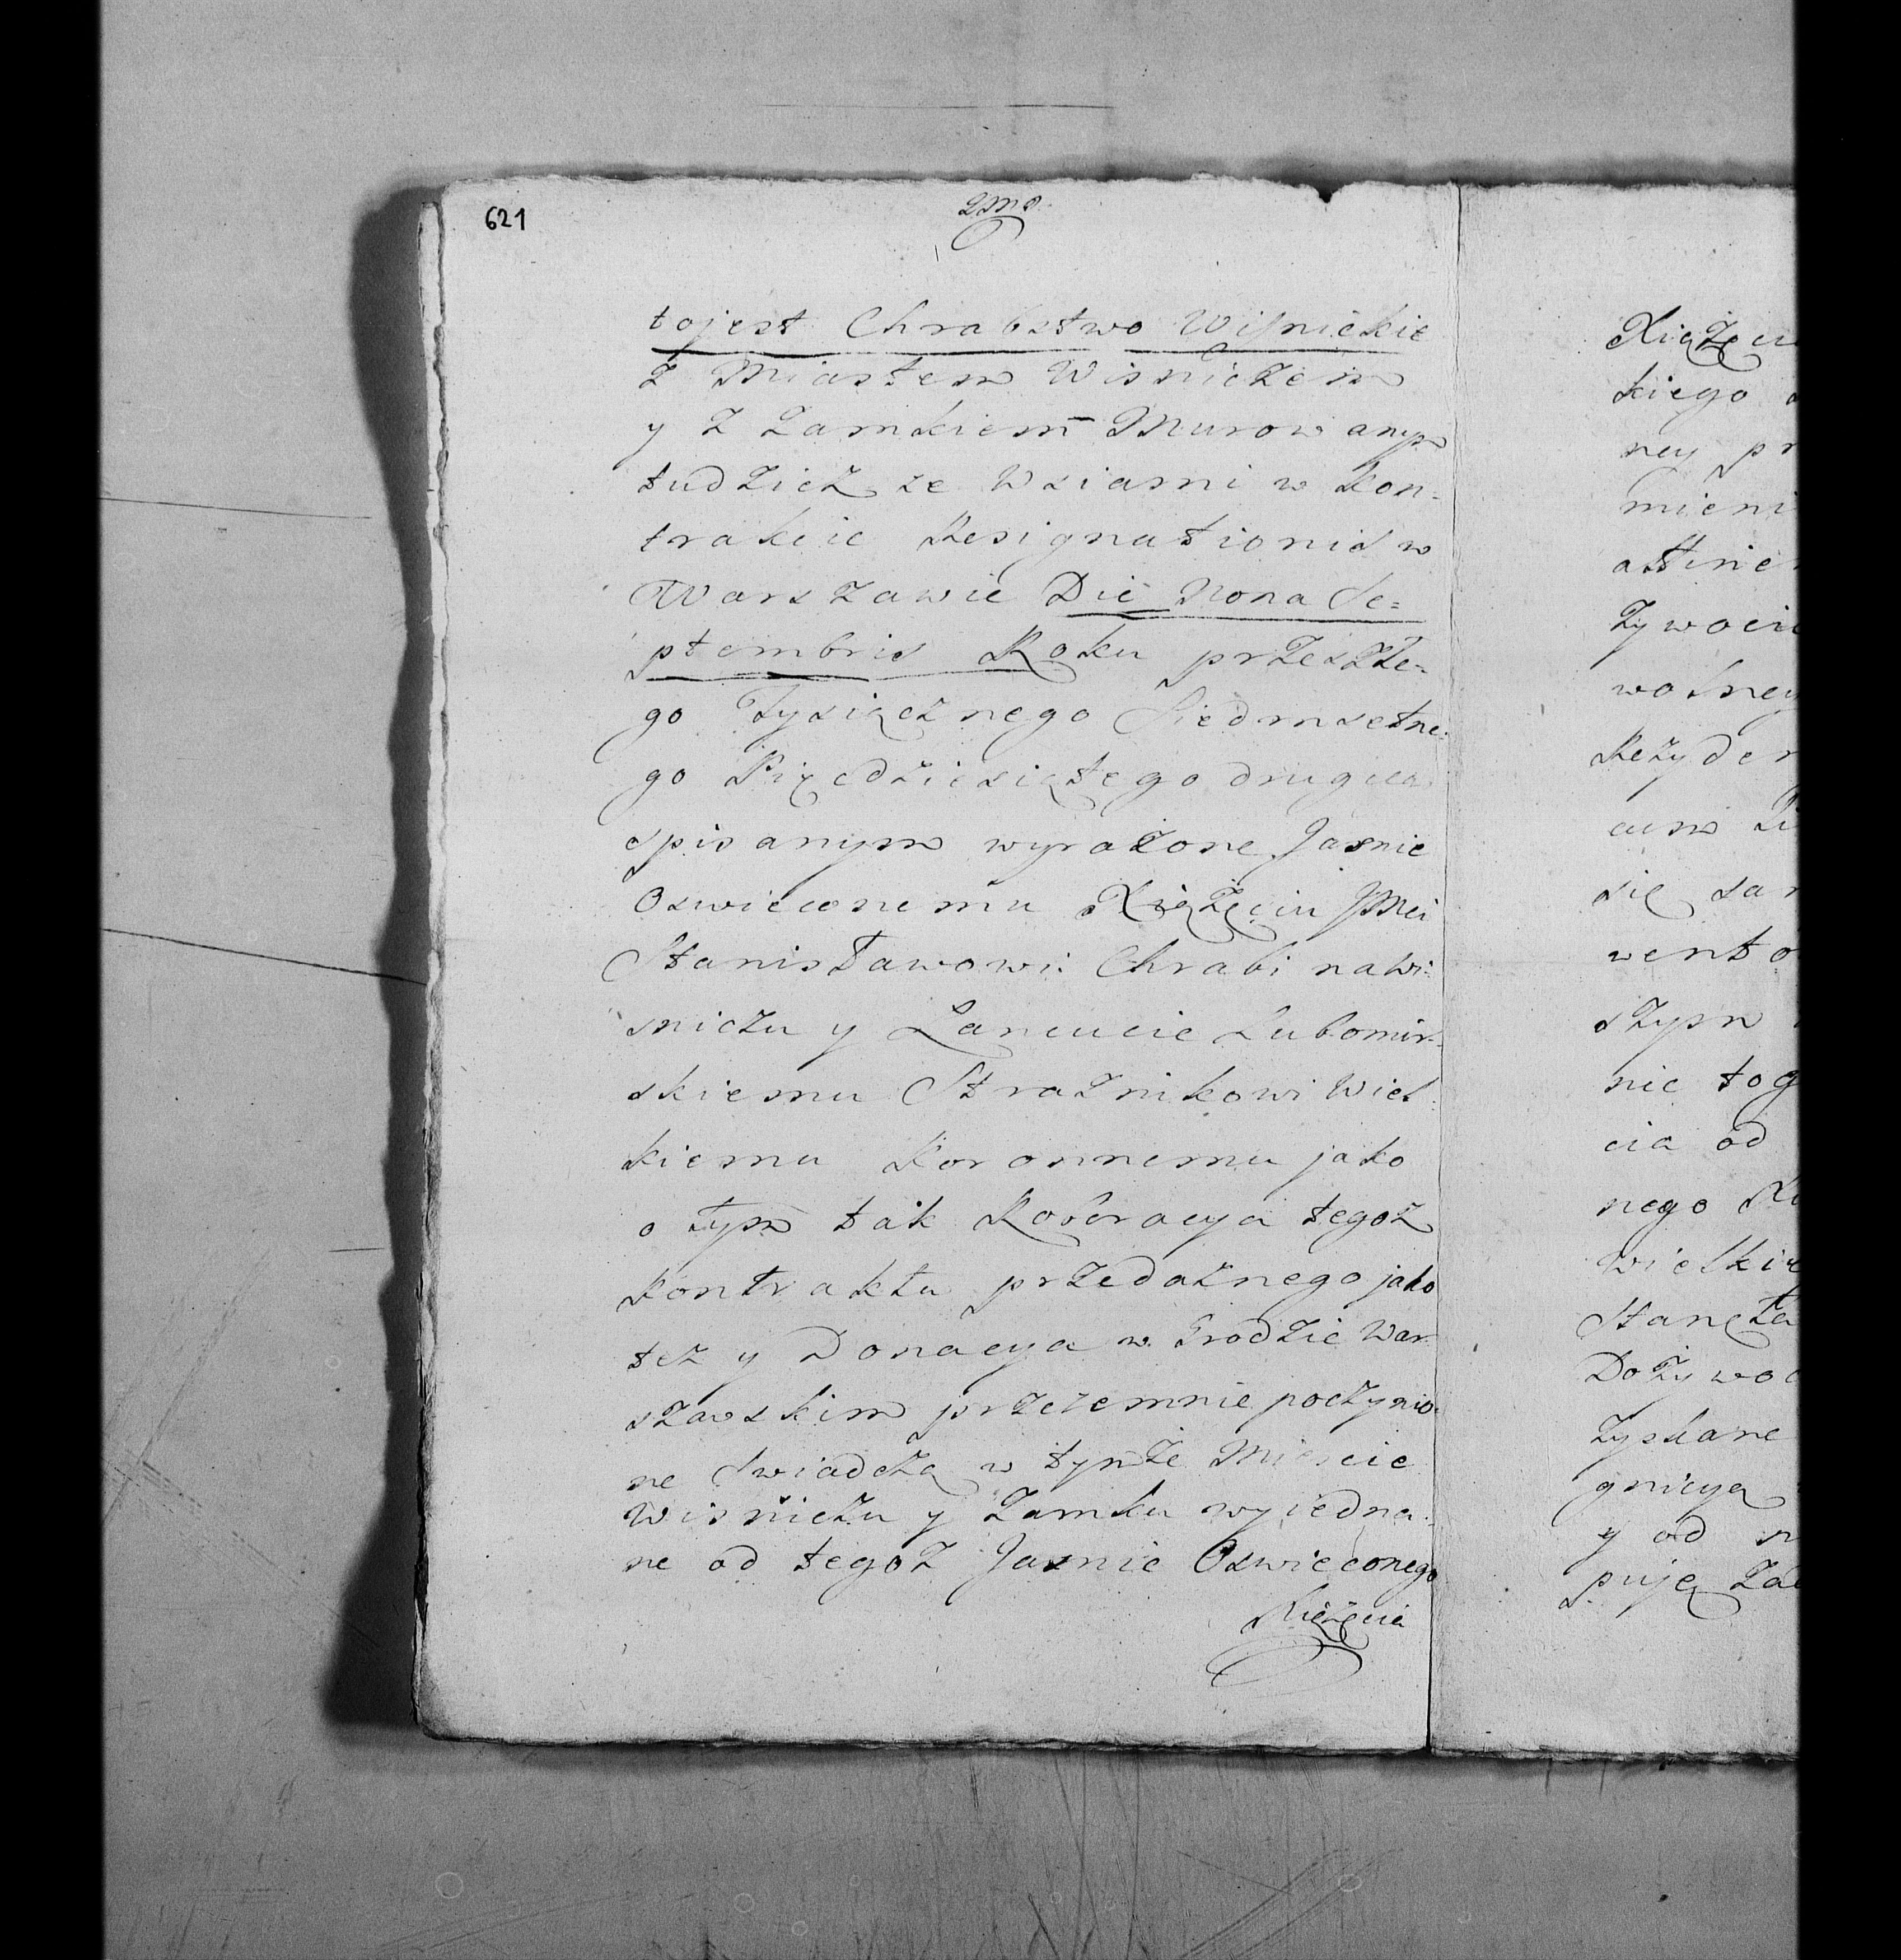 621
2do
tojest Chrabstwo Wisnickie
z Miastem Wisniczem
y z Zamkiem Murowanym
tudziez ze Wsiami w kon-
trakcie Resignationis w
Warszawie Die Nona Se=
ptembris Roku przeszłe-
go Tysiącznego Siedmsetne-
go Pięcdziesiątego drugiego
spisanym wyrażone Jasnie
Oswieconemu Xiążęciu JMci
Stanisławowi Chrabi na Wi-
sniczu y Łancucie Lubomir-
skiemu Strażnikowi Wiel-
kiemu Koronnemu jako
o tym tak Roboracya tegoż
Kontraktu przedażnego jako
też y Donacya w Grodzie War-
szawskim przezemnie poczynio-
ne swiadczą w tymże Miescie
Wisniczu y Zamku wyjedna-
ne od tegoż Jasnie Oswieconego
Xiążęcia
Xiążęci
kiego
ney pr
mieni
attine
Zywoci
wolney
Rezyden
się sa
wento
szym
nie tog
cia od
nego
wielki
Stanęła
Dożywo
zyskane
gnicya
y od
pują